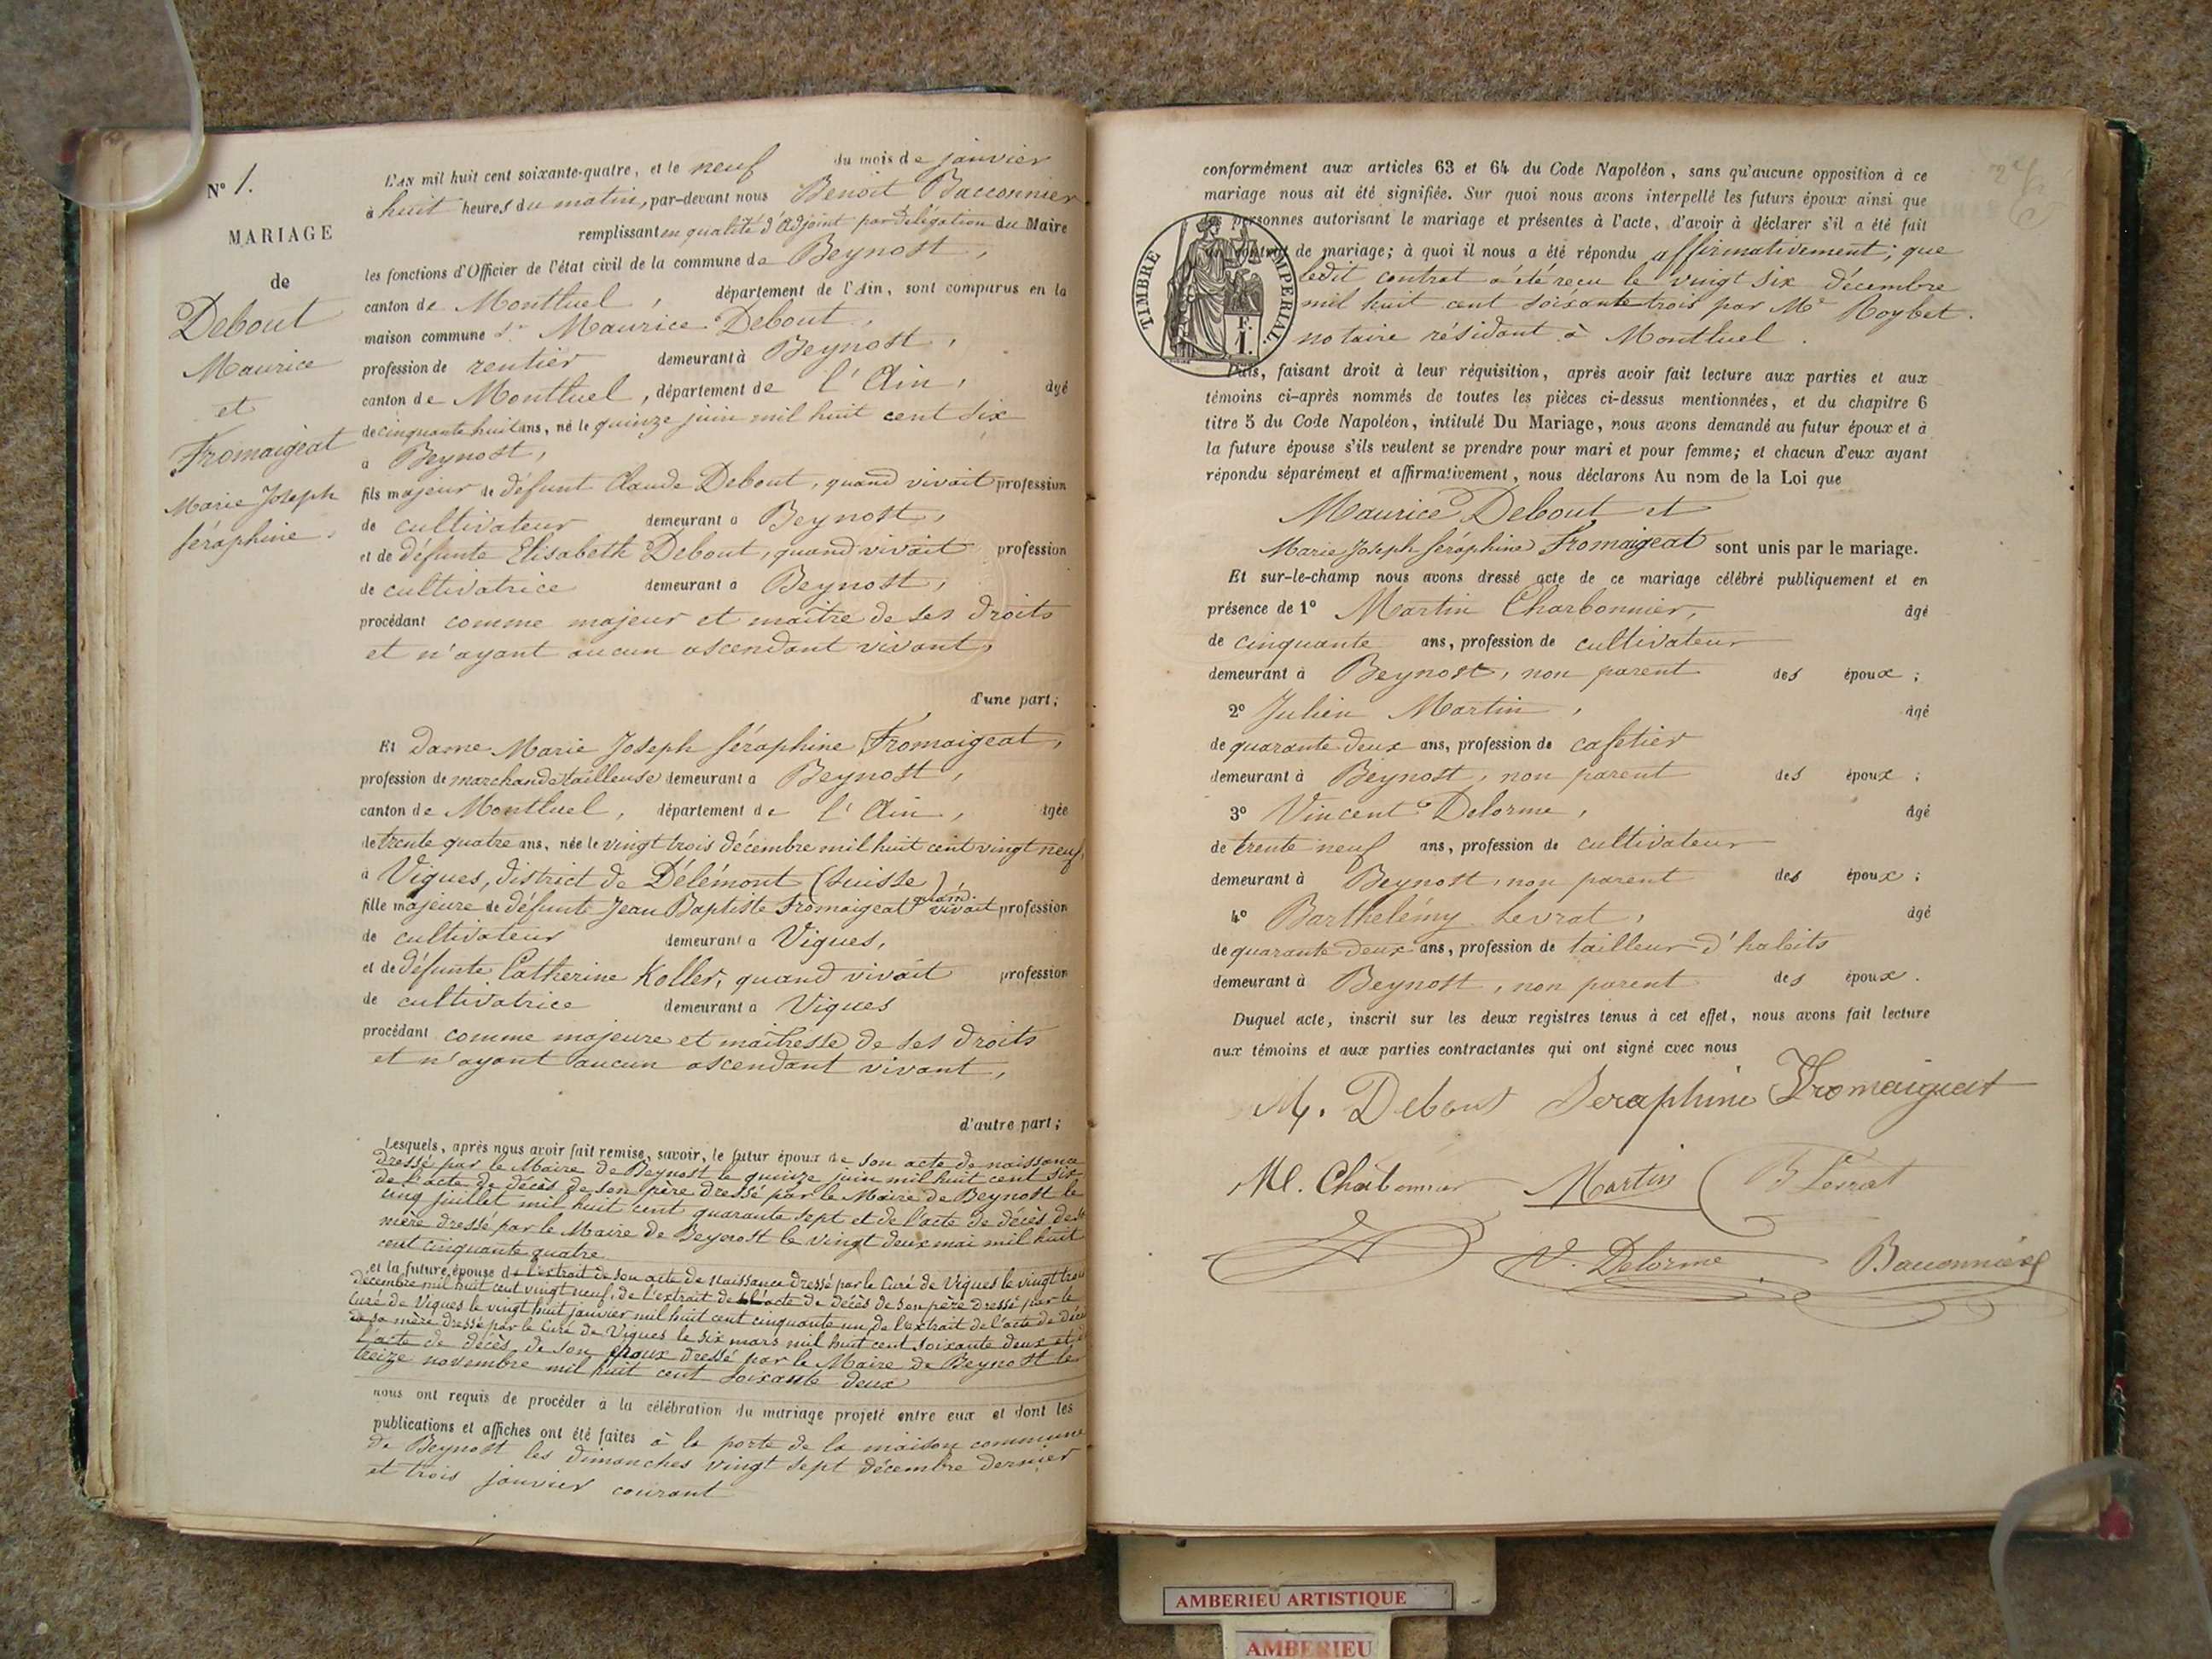 N° 1.
MARIAGE
de
Debout
Maurice
et
Fromaigeat
Marie Joseph
Séraphine.
L'AN mil huit cent soixante-quatre, et le neuf du mois de janvier
à huit heures du matin, par-devant nous Benoit Bacconnier
remplissant en qualité d'Adjoint par délégation du Maire
les fonctions d'Officier de l'état civil de la commune de Beynost,
canton de Montluel, département de l'Ain, sont comparus en la
maison commune Sr Maurice Debout,
profession de rentier demeurant à Beynost,
canton de Montluel, département de l'Ain, âgé
de cinquante huit ans, né le quinze juin mil huit cent six
à Beynost,
fils majeur de défunt Claude Debout, quand vivait profession
de cultivateur demeurant à Beynost,
et de défunte Elisabeth Debout, quand vivait profession
de cultivatrice demeurant à Beynost,
procédant comme majeur et maître de ses droits
et n'ayant aucun ascendant vivant,
d'une part;
Et dame Marie Joseph Séraphine Fromaigeat,
profession de marchande tailleuse demeurant à Beynost,
canton de Montluel, département de l'Ain, âgée
de trente quatre ans, née le vingt trois décembre mil huit cent vingt neuf,
à Viques, district de Délémont (Suisse),
fille majeure de défunt Jean Baptiste Fromaigeat quand vivait profession
de cultivateur demeurant à Viques,
et de défunte Catherine Koller, quand vivait profession
de cultivatrice demeurant à Viques
procédant comme majeure et maîtresse de ses droits
et n'ayant aucun ascendant vivant,
d'autre part;
Lesquels, après nous avoir fait remise, savoir, le futur époux de son acte de naissance
dressé par le Maire de Beynost le quinze juin mil huit cent six
de l'acte de décès de son père dressé par le Maire de Beynost le
cinq juillet mil huit cent quarante sept et de l'acte de décès de sa
mère dressé par le Maire de Beynost le vingt deux mai mil huit
cent cinquante quatre
et la future épouse de l'extrait de son acte de naissance dressé par le Curé de Viques le vingt trois
décembre mil huit cent vingt neuf, de l'extrait de l'acte de décès de son père dressé par le
Curé de Viques le vingt huit janvier mil huit cent cinquante un, de l'extrait de l'acte de décès
de sa mère dressé par le Curé de Viques le six mars mil huit cent soixante deux et de
l'acte de décès de son époux dressé par le Maire de Beynost le
treize novembre mil huit cent soixante deux
nous ont requis de procéder à la célébration du mariage projeté entre eux et dont les
publications et affiches ont été faites à la porte de la maison commune
de Beynost les dimanches vingt sept décembre dernier
et trois janvier courant
conformément aux articles 63 et 64 du Code Napoléon, sans qu'aucune opposition à ce
mariage nous ait été signifiée. Sur quoi nous avons interpellé les futurs époux ainsi que
les personnes autorisant le mariage et présentes à l'acte, d'avoir à déclarer s'il a été fait
contrat de mariage; à quoi il nous a été répondu affirmativement; que
ledit contrat a été reçu le vingt six décembre
mil huit cent soixante trois par Me Roybet.
notaire résidant à Montluel.
TIMBRE IMPERIAL.
F.
1.
Puis, faisant droit à leur réquisition, après avoir fait lecture aux parties et aux
témoins ci-après nommés de toutes les pièces ci-dessus mentionnées, et du chapitre 6
titre 5 du Code Napoléon, intitulé Du Mariage, nous avons demandé au futur époux et à
la future épouse s'ils veulent se prendre pour mari et pour femme; et chacun d'eux ayant
répondu séparément et affirmativement, nous déclarons Au nom de la Loi que
Maurice Debout et
Marie Joseph Séraphine Fromaigeat sont unis par le mariage.
Et sur-le-champ nous avons dressé acte de ce mariage célébré publiquement et en
présence de 1° Martin Charbonnier, âgé
de cinquante ans, profession de cultivateur
demeurant à Beynost, non parent des époux;
2° Julien Martin, âgé
de quarante deux ans, profession de cafetier
demeurant à Beynost, non parent des époux;
3° Vincent Delorme, âgé
de trente neuf ans, profession de cultivateur
demeurant à Beynost, non parent des époux;
4° Barthelémy Levrat, âgé
de quarante deux ans, profession de tailleur d'habits
demeurant à Beynost, non parent des époux.
Duquel acte, inscrit sur les deux registres tenus à cet effet, nous avons fait lecture
aux témoins et aux parties contractantes qui ont signé avec nous
M. Debout Seraphine Fromaigeat
M. Chabonnier Martin B Levrat
V. Delorme Bacconnier
AMBERIEU ARTISTIQUE
AMBERIEU